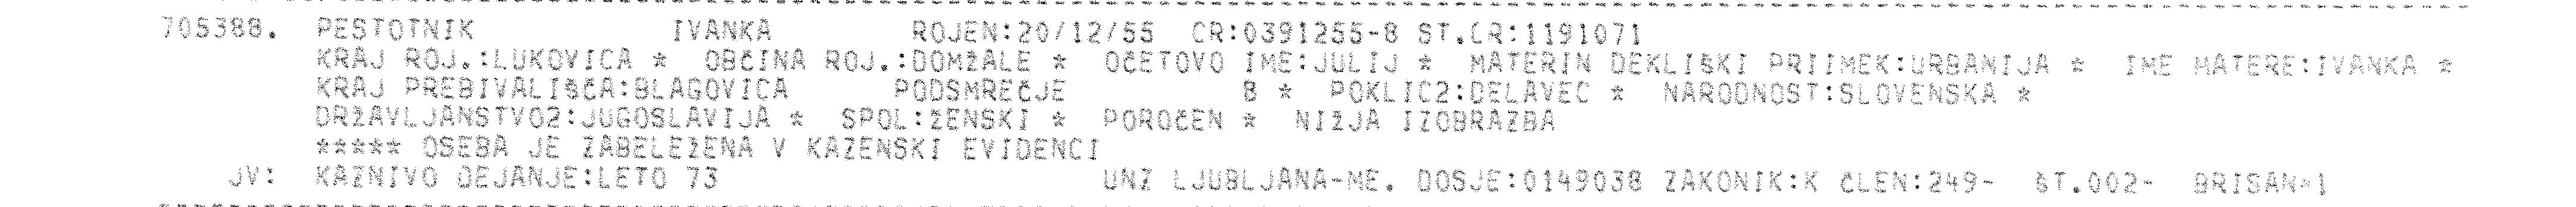 705388. PESTOTNIK IVANKA ROJEN:20/12/55 CR:0391255-8 ST.CR:1191071
KRAJ ROJ.:LUKOVICA * OBČINA ROJ.:DOMŽALE * OČETOVO IME:JULIJ * MATERIN DEKLIŠKI PRIIMEK:URBANIJA * IME MATERE:IVANKA *
KRAJ PREBIVALIŠČA:BLAGOVICA PODSMREČJE 8 * POKLIC2:DELAVEC * NARODNOST:SLOVENSKA *
DRŽAVLJANSTVO2:JUGOSLAVIJA * SPOL:ŽENSKI * POROČEN * NIŽJA IZOBRAZBA
***** OSEBA JE ZABELEŽENA V KAZENSKI EVIDENCI
JV: KAZNIVO DEJANJE:LETO 73 UNZ LJUBLJANA-ME. DOSJE:0149038 ZAKONIK:K ČLEN:249- ŠT.002- BRISAN=1